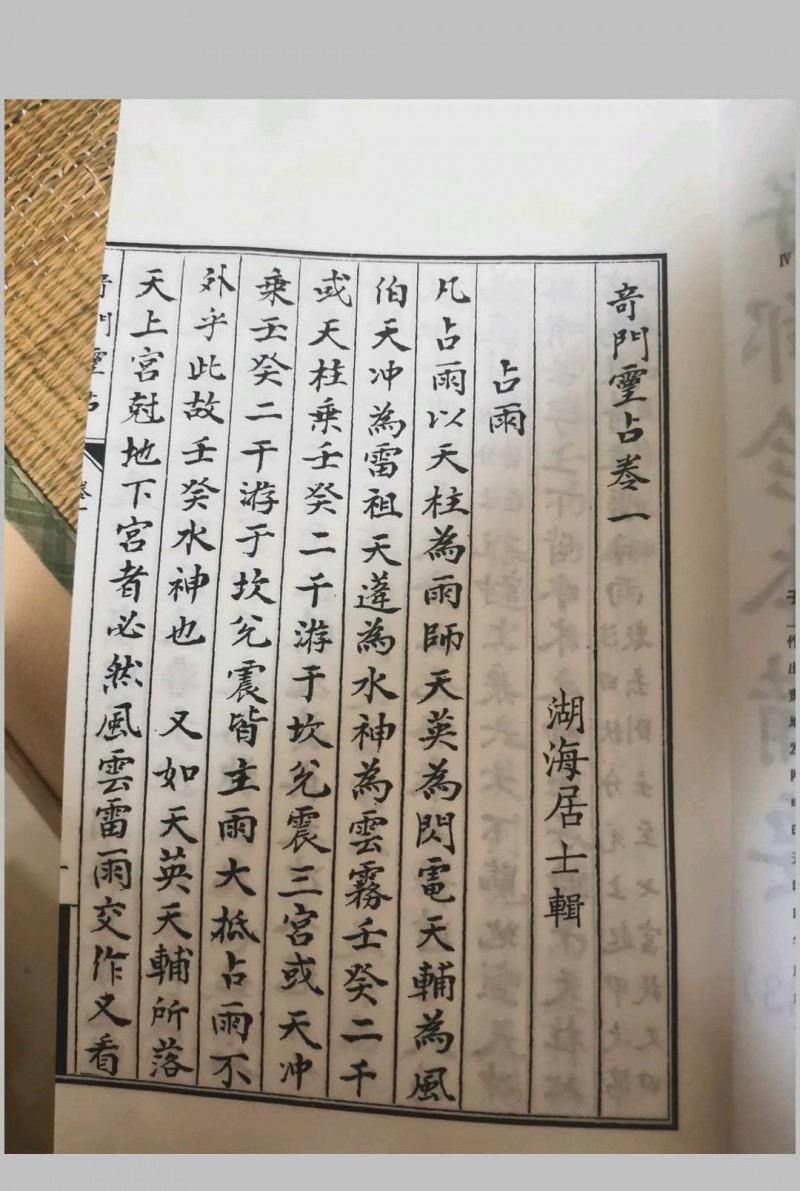 奇門靈占卷一
湖海居士輯
占雨
凡占雨以天柱為雨師天英為閃電天輔為風
伯天冲為雷祖天蓬為水神為雲霧壬癸二干
或天柱乘壬癸二干游于坎兊震三宮或天冲
乘壬癸二干游于坎兊震皆主雨大抵占雨不
外乎此故壬癸水神也 又如天英天輔所落
天上宮尅地下宮者必然風雲雷雨交作又看
奇門靈占 卷一